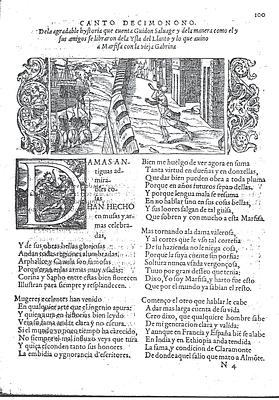 100
CANTO DECIMONONO.
De la agradable hystoria que cuenta Guidon Saluage y de la manera como el y
sus amigos se libraron de la Ysla del Llanto y lo que auino
a Marfisa con la vieja Gabrina
DAMAS AN-
tiguas ad-
mira-
bles co-
sas
HAN HECHO
en musas y ar-
mas celebra-
das,
Y de sus obras bellas gloriosas
Andan todas regiones alumbradas.
Arphalice y Camila son famosas
Porque eran en las armas muy vsadas:
Corina y Sapho entre estas bien florecen
Illustran para siempre y resplandecen.
Mugeres excelentes han venido
En qualquier arte que el ingenio apura:
Y quien aun en historias bien leydo
Vera su fama andar clara y no escura.
Si el mundo su poco tiempo ha carecido,
No siempre el mal influxo veys que tura
Y quiça esconden tanto sus honores
La embidia o ygnorancia d'escritores.
Bien me huelgo de ver agora en suma
Tanta virtud en dueñas y en donzellas,
Que dar bien pueden obra a toda pluma
Porque en años futuros sepan dellas.
Y porque lengua mala se resuma
En no hablar sino en sus cosas bellas,
Y sus loores salgan de tal guisa,
Que sobren y con mucho a esta Marfisa.
Mas tornando a la dama valerosa,
Y al cortes que le vsò tal cortesia
De su hazienda no le niega cosa,
Porque la suya cuente sin porfia:
Soltura nunca vsada vergonçosa,
Tuuo por gran desseo que tenia:
Dixo, Yo soy Marfisa, y harto fue esto
Que por el mundo ya sabian el resto.
Començo el otro que hablar le cabe
A dar mas larga cuenta de su vida
Creo dixo, que qualquier hombre sabe
De mi generacion clara y valida:
Y aunque en Francia y España biē se alabe
En India y en Ethiopia andà tendida
La fama, y condicion de Claramonte
De donde aquel salio que mato a Almōte.
N 4